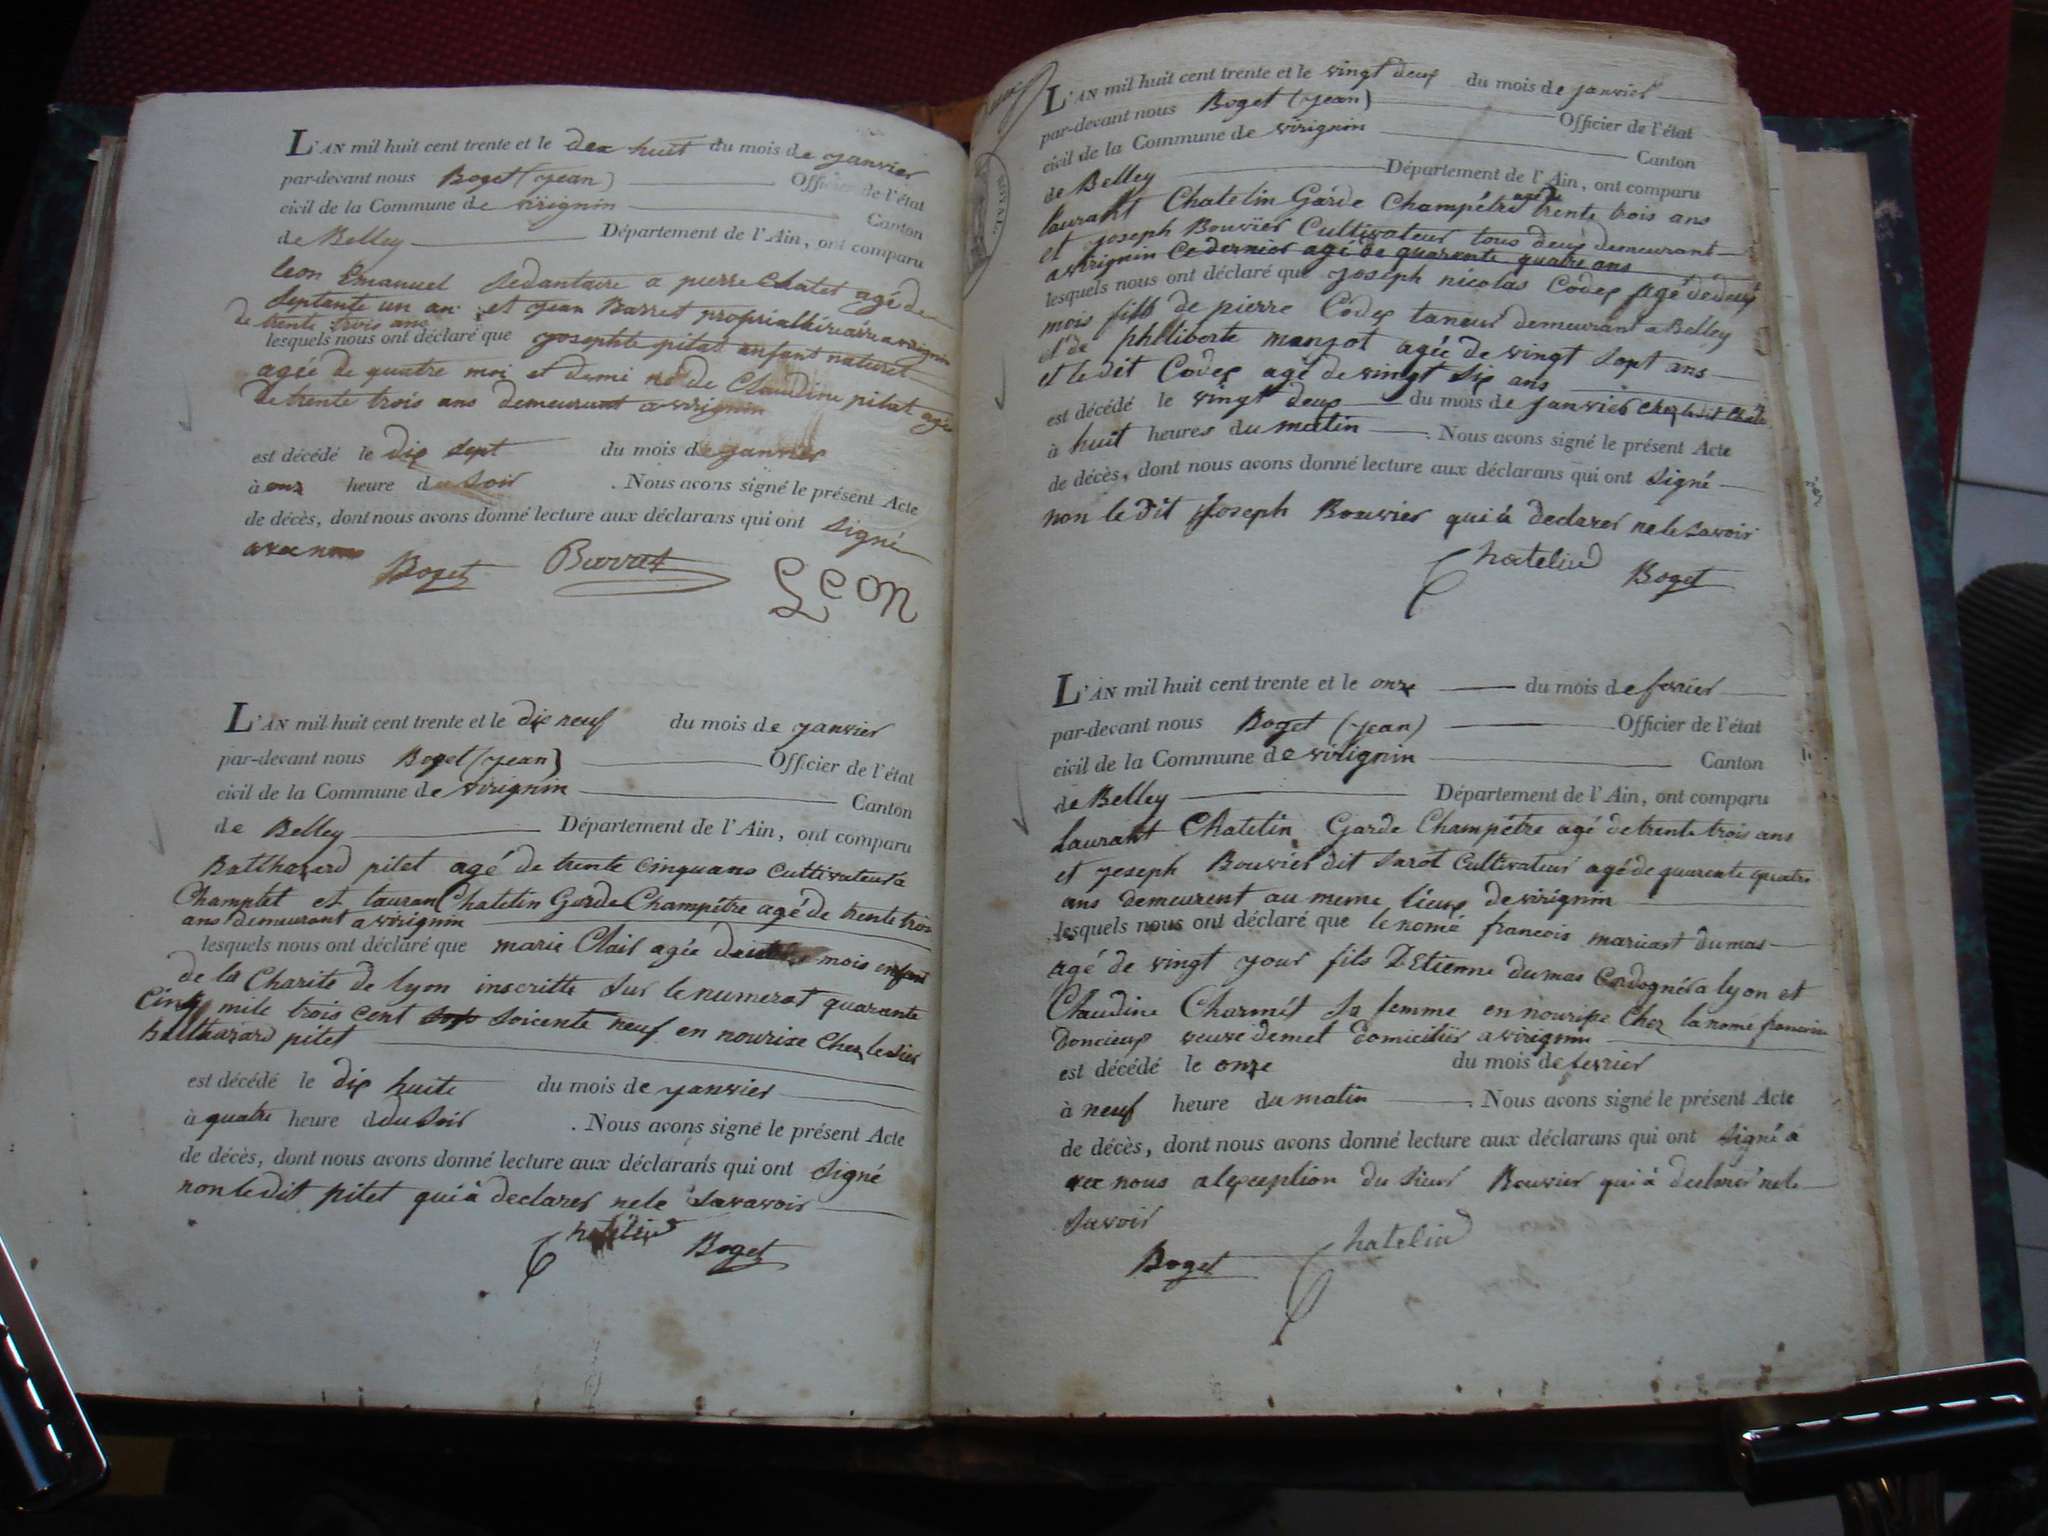 L'AN mil huit cent trente et le dex huit du mois de janvier
par-devant nous Boget (jean) Officier de l'état
civil de la Commune de virignin Canton
de Belley Département de l'Ain, ont comparu
leon Emanuel Sedantaire a pierre Chatet agé de
septante un an et jean Barret a virignin
de trente trois ans
lesquels nous ont déclaré que josephte pitat enfant naturel
agée de quatre moi et demi né de Claudine pitat agée
de trente trois ans demeurant a virignin
est décédé le dix sept du mois de janvier
à onz heure du soir . Nous avons signé le présent Acte
de décès, dont nous avons donné lecture aux déclarans qui ont signé
avec nous
Boget Barret Leon
L'AN mil huit cent trente et le dix neuf du mois de janvier
par-devant nous Boget (jean) Officier de l'état
civil de la Commune de virignin Canton
de Belley Département de l'Ain, ont comparu
Balthazard pitet agé de trente cinquans cultivateur a
Champtet et lauran Chatelin Garde Champêtre agé de trente trois
ans demeurant a virignin
lesquels nous ont déclaré que marie Clair agée mois enfant
de la Charite de lyon inscritte sur le numerot quarante
cinq mile trois cent soicente neuf en nourixe Chez le sieur
Balthazard pitet
est décédé le dix huite du mois de janvier
à quatre heure ddu soir . Nous avons signé le présent Acte
de décès, dont nous avons donné lecture aux déclarans qui ont signé
non le dit pitet qui à declarer ne le savavoir
Chatelin Boget
L'AN mil huit cent trente et le vingt deux du mois de janvier
par-devant nous Boget (jean) Officier de l'état
civil de la Commune de virignin Canton
de Belley Département de l'Ain, ont comparu
laurant Chatelin Garde Champétre agé de trente trois ans
et joseph Bouvier Cultivateur tous deux demeurant
a virignin ce dernier agé de quarente quatre ans
lesquels nous ont déclaré que joseph nicolas Codex agé de deux
mois fils de pierre Codex taneur demeurant a Belley
et de philiberte manjot agée de vingt sept ans
et le dit Codex agé de vingt six ans
est décédé le vingt deux du mois de janvier chez le dit
à huit heures du matin . Nous avons signé le présent Acte
de décès, dont nous avons donné lecture aux déclarans qui ont signé
non le dit joseph Bouvier qui à declarer ne le savoir
Chatelin Boget
L'AN mil huit cent trente et le onze du mois de fevrier
par-devant nous Boget (jean) Officier de l'état
civil de la Commune de virignin Canton
de Belley Département de l'Ain, ont comparu
laurant Chatelin Garde Champétre agé de trente trois ans
et joseph Bouvier dit sarot cultivateur agé de quarente quatre
ans demeurent au meme lieux de virignin
lesquels nous ont déclaré que le nomé francois dumas
agé de vingt jour fils D'Etienne dumas Cordognér a lyon et
Claudine Charmét sa femme en nourixe Chez la nomé francoise
Doncieux veuve demet Domiciliér a virignin
est décédé le onze du mois de fevrier
à neuf heure du matin . Nous avons signé le présent Acte
de décès, dont nous avons donné lecture aux déclarans qui ont signé a
vec nous alexception du sieur Bouvier qui à declarer nele
savoir
Boget Chatelin